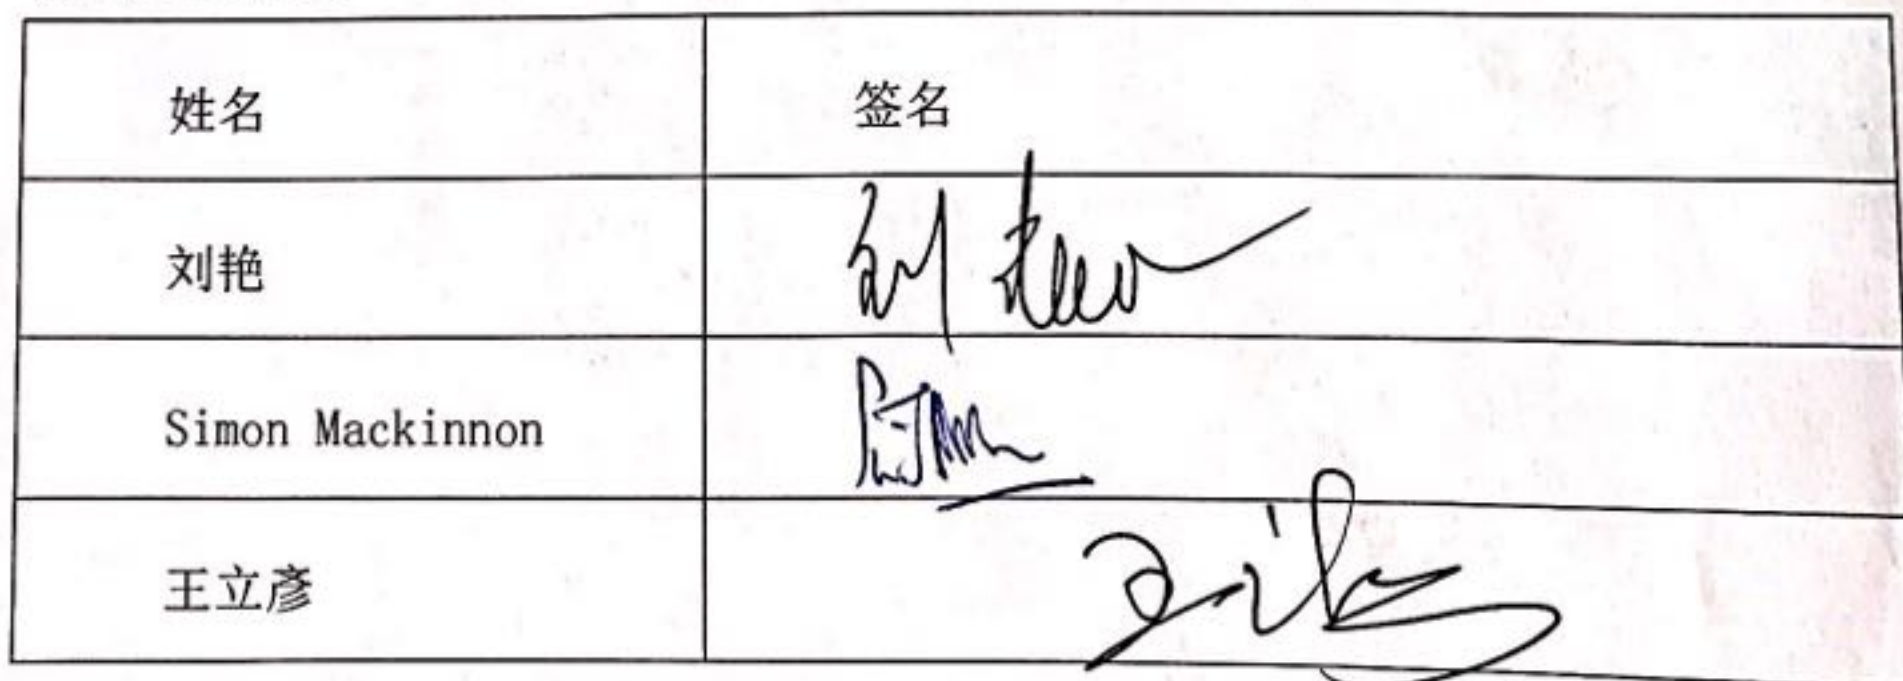 姓名 签名
刘艳 刘艳
Simon Mackinnon
王立彦